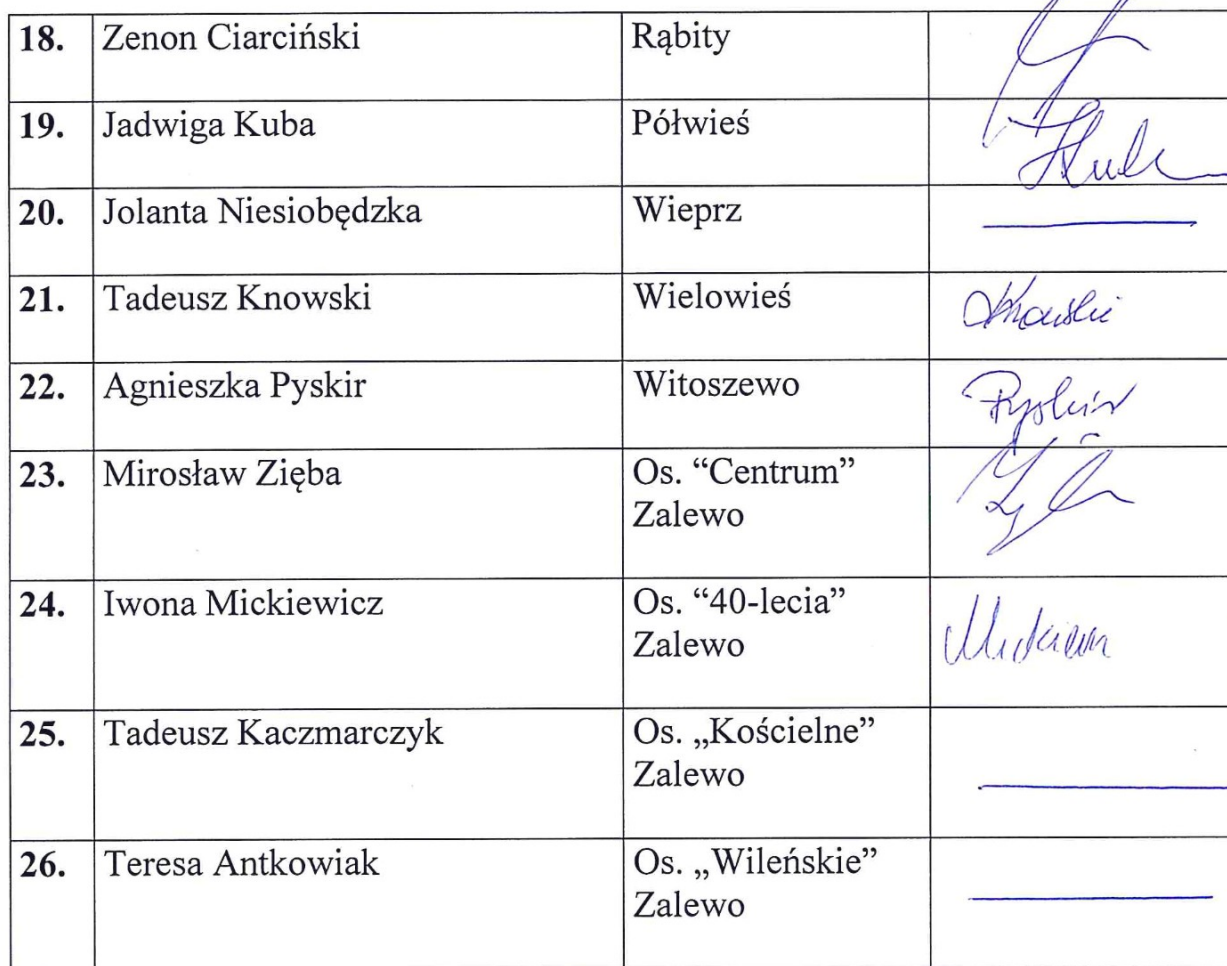 18. Zenon Ciarciński Rąbity
19. Jadwiga Kuba Półwieś
20. Jolanta Niesiobędzka Wieprz
21. Tadeusz Knowski Wielowieś
22. Agnieszka Pyskir Witoszewo
23. Mirosław Zięba Os. “Centrum”
Zalewo
24. Iwona Mickiewicz Os. “40-lecia”
Zalewo
25. Tadeusz Kaczmarczyk Os. „Kościelne”
Zalewo
26. Teresa Antkowiak Os. „Wileńskie”
Zalewo